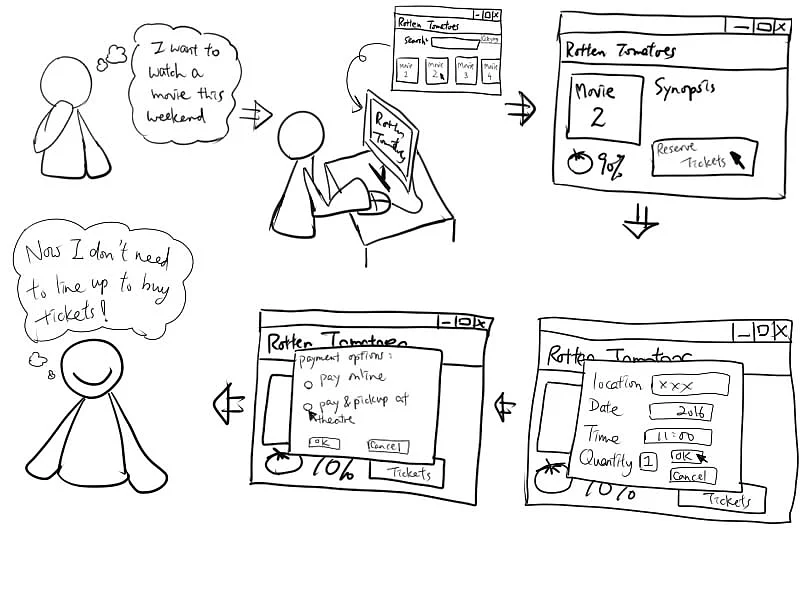 I want to
watch a
movie this
weekend
Rotten Tomatoes
Search:
Movie
1
Movie
2
Movie
3
Movie
4
Rotten
Tomatoes
Rotten Tomatoes
Movie
2
Synopsis
90%
Reserve
Tickets
Rotten Tomatoes
location xxx
Date 2016
Time 11:00
Quantity 1 OK
Cancel
90%
Tickets
Rotten Tomatoes
payment options:
pay online
pay & pickup at
theatre
OK Cancel
90%
Tickets
Now I don't need
to line up to buy
tickets!